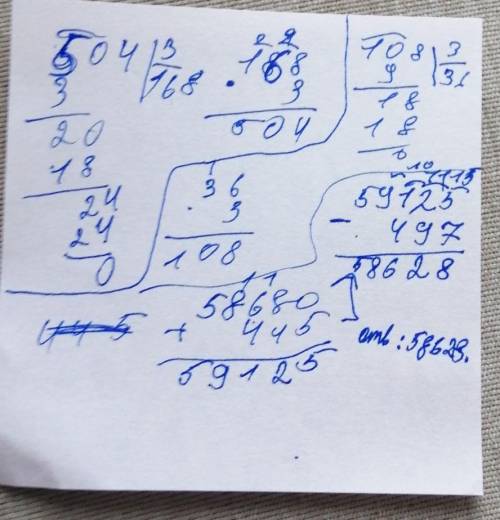 504 | 3
3 168
20
18
24
24
0
2 2
168
· 3
504
108 | 3
9 36
18
18
0
1
36
· 3
108
10 11 15
59125
- 497
58628
1 1
58680
+ 445
59125
445
отв: 58628.